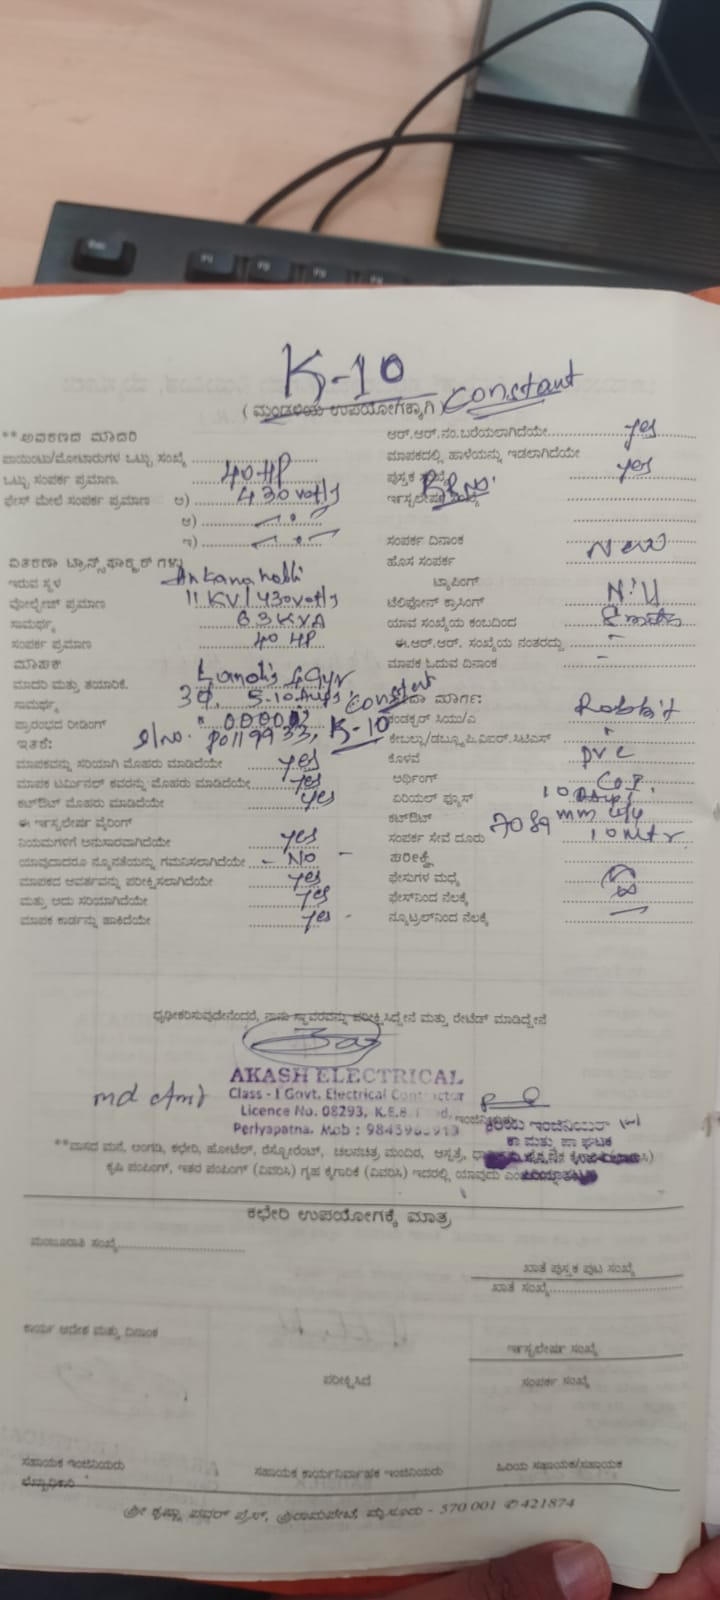 K-10
constant
( ಮಂಡಳಿಯ ಉಪಯೋಗಕ್ಕಾಗಿ )
** ಆವರಣದ ಮಾದರಿ
ಪಾಯಿಂಟು/ಮೋಟಾರುಗಳ ಒಟ್ಟು ಸಂಖ್ಯೆ
ಒಟ್ಟು ಸಂಪರ್ಕ ಪ್ರಮಾಣ. 40 HP
ಫೇಸ್ ಮೇಲೆ ಸಂಪರ್ಕ ಪ್ರಮಾಣ ಅ) 430 volts
ಆ)
ಇ)
ವಿತರಣಾ ಟ್ರಾನ್ಸ್‌ಫಾರ್ಮರ್ ಗಳು
ಇರುವ ಸ್ಥಳ
ವೋಲ್ಟೇಜ್ ಪ್ರಮಾಣ 11 KV/430volts
ಸಾಮರ್ಥ್ಯ 63 KVA
ಸಂಪರ್ಕ ಪ್ರಮಾಣ 40 HP
ಮಾಪಕ
ಮಾದರಿ ಮತ್ತು ತಯಾರಿಕೆ.
ಸಾಮರ್ಥ್ಯ 5-10 Amps constant
ಪ್ರಾರಂಭದ ರೀಡಿಂಗ್
ಇತರೆ: Sl no. K-10
ಮಾಪಕವನ್ನು ಸರಿಯಾಗಿ ಮೊಹರು ಮಾಡಿದೆಯೇ yes
ಮಾಪಕ ಟರ್ಮಿನಲ್ ಕವರನ್ನು ಮೊಹರು ಮಾಡಿದೆಯೇ yes
ಕಟ್‌ಔಟ್ ಮೊಹರು ಮಾಡಿದೆಯೇ yes
ಈ ಇನ್ಸ್ಟಲೇಷನ್ ವೈರಿಂಗ್
ನಿಯಮಗಳಿಗೆ ಅನುಸಾರವಾಗಿದೆಯೇ yes
ಯಾವುದಾದರೂ ನ್ಯೂನತೆಯನ್ನು ಗಮನಿಸಲಾಗಿದೆಯೇ - No -
ಮಾಪಕದ ಆವರ್ತವನ್ನು ಪರೀಕ್ಷಿಸಲಾಗಿದೆಯೇ yes
ಮತ್ತು ಅದು ಸರಿಯಾಗಿದೆಯೇ yes
ಮಾಪಕ ಕಾರ್ಡನ್ನು ಹಾಕಿದೆಯೇ yes
ಆರ್.ಆರ್.ನಂ.ಬರೆಯಲಾಗಿದೆಯೇ yes
ಮಾಪಕದಲ್ಲಿ ಹಾಳೆಯನ್ನು ಇಡಲಾಗಿದೆಯೇ yes
ಪುಸ್ತಕ ಸಂಖ್ಯೆ
ಇನ್ಸ್ಟಲೇಷನ್ ಸಂಖ್ಯೆ
ಸಂಪರ್ಕ ದಿನಾಂಕ
ಹೊಸ ಸಂಪರ್ಕ New
ಟ್ಯಾಪಿಂಗ್
ಟೆಲಿಫೋನ್ ಕ್ರಾಸಿಂಗ್ Nill
ಯಾವ ಸಂಖ್ಯೆಯ ಕಂಬದಿಂದ
ಈ.ಆರ್.ಆರ್. ಸಂಖ್ಯೆಯ ನಂತರದ್ದು
ಮಾಪಕ ಓದುವ ದಿನಾಂಕ
ಮಾರ್ಗ:
ಕಂಡಕ್ಟರ್ ಸಿಯು/ಎ Rabbit
ಕೇಬಲ್ಲು/ಡಬ್ಲ್ಯೂ.ಪಿ.ಐಆರ್.ಸಿಟಿಎಸ್
ಕೊಳವೆ PVC
ಅರ್ಥಿಂಗ್
ಏರಿಯಲ್ ಫ್ಯೂಸ್
ಕಟ್‌ಔಟ್
ಸಂಪರ್ಕ ಸೇವೆ ದೂರು 10 Mtr
ಪರೀಕ್ಷೆ
ಫೇಸುಗಳ ಮಧ್ಯೆ
ಫೇಸ್‌ನಿಂದ ನೆಲಕ್ಕೆ
ನ್ಯೂಟ್ರಲ್‌ನಿಂದ ನೆಲಕ್ಕೆ
ಧೃಢೀಕರಿಸುವುದೇನೆಂದರೆ, ನಾನು ಸ್ಥಾವರವನ್ನು ಪರೀಕ್ಷಿಸಿದ್ದೇನೆ ಮತ್ತು ರೇಟೆಡ್ ಮಾಡಿದ್ದೇನೆ
AKASH ELECTRICAL
Class - I Govt. Electrical Contractor
Licence No. 08293, K.E.B.
Periyapatna. Mob :
ಕಿರಿಯ ಇಂಜಿನಿಯರ್
ಕಾ ಮತ್ತು ಪಾ ಘಟಕ
**ವಾಸದ ಮನೆ, ಅಂಗಡಿ, ಕಛೇರಿ, ಹೋಟೆಲ್, ರೆಸ್ಟೋರೆಂಟ್, ಚಲನಚಿತ್ರ ಮಂದಿರ, ಆಸ್ಪತ್ರೆ,
ಕೃಷಿ ಪಂಪಿಂಗ್, ಇತರ ಪಂಪಿಂಗ್ (ವಿವರಿಸಿ) ಗೃಹ ಕೈಗಾರಿಕೆ (ವಿವರಿಸಿ) ಇದರಲ್ಲಿ ಯಾವುದು
ಕಛೇರಿ ಉಪಯೋಗಕ್ಕೆ ಮಾತ್ರ
ಮಂಜೂರಾತಿ ಸಂಖ್ಯೆ
ಖಾತೆ ಪುಸ್ತಕ ಪುಟ ಸಂಖ್ಯೆ
ಖಾತೆ ಸಂಖ್ಯೆ
ಕಾರ್ಯ ಆದೇಶ ಮತ್ತು ದಿನಾಂಕ
ಇನ್ಸ್ಟಲೇಷನ್ ಸಂಖ್ಯೆ
ಪರೀಕ್ಷಿಸಿದೆ
ಸಂಪರ್ಕ ಸಂಖ್ಯೆ
ಸಹಾಯಕ ಇಂಜಿನಿಯರು
ಸಹಾಯಕ ಕಾರ್ಯನಿರ್ವಾಹಕ ಇಂಜಿನಿಯರು
ಹಿರಿಯ ಸಹಾಯಕ/ಸಹಾಯಕ
ಶ್ರೀ ಕೃಷ್ಣಾ ಪವರ್ ಪ್ರೆಸ್, ಶ್ರೀರಾಮಪೇಟೆ, ಮೈಸೂರು - 570 001 ✆ 421874